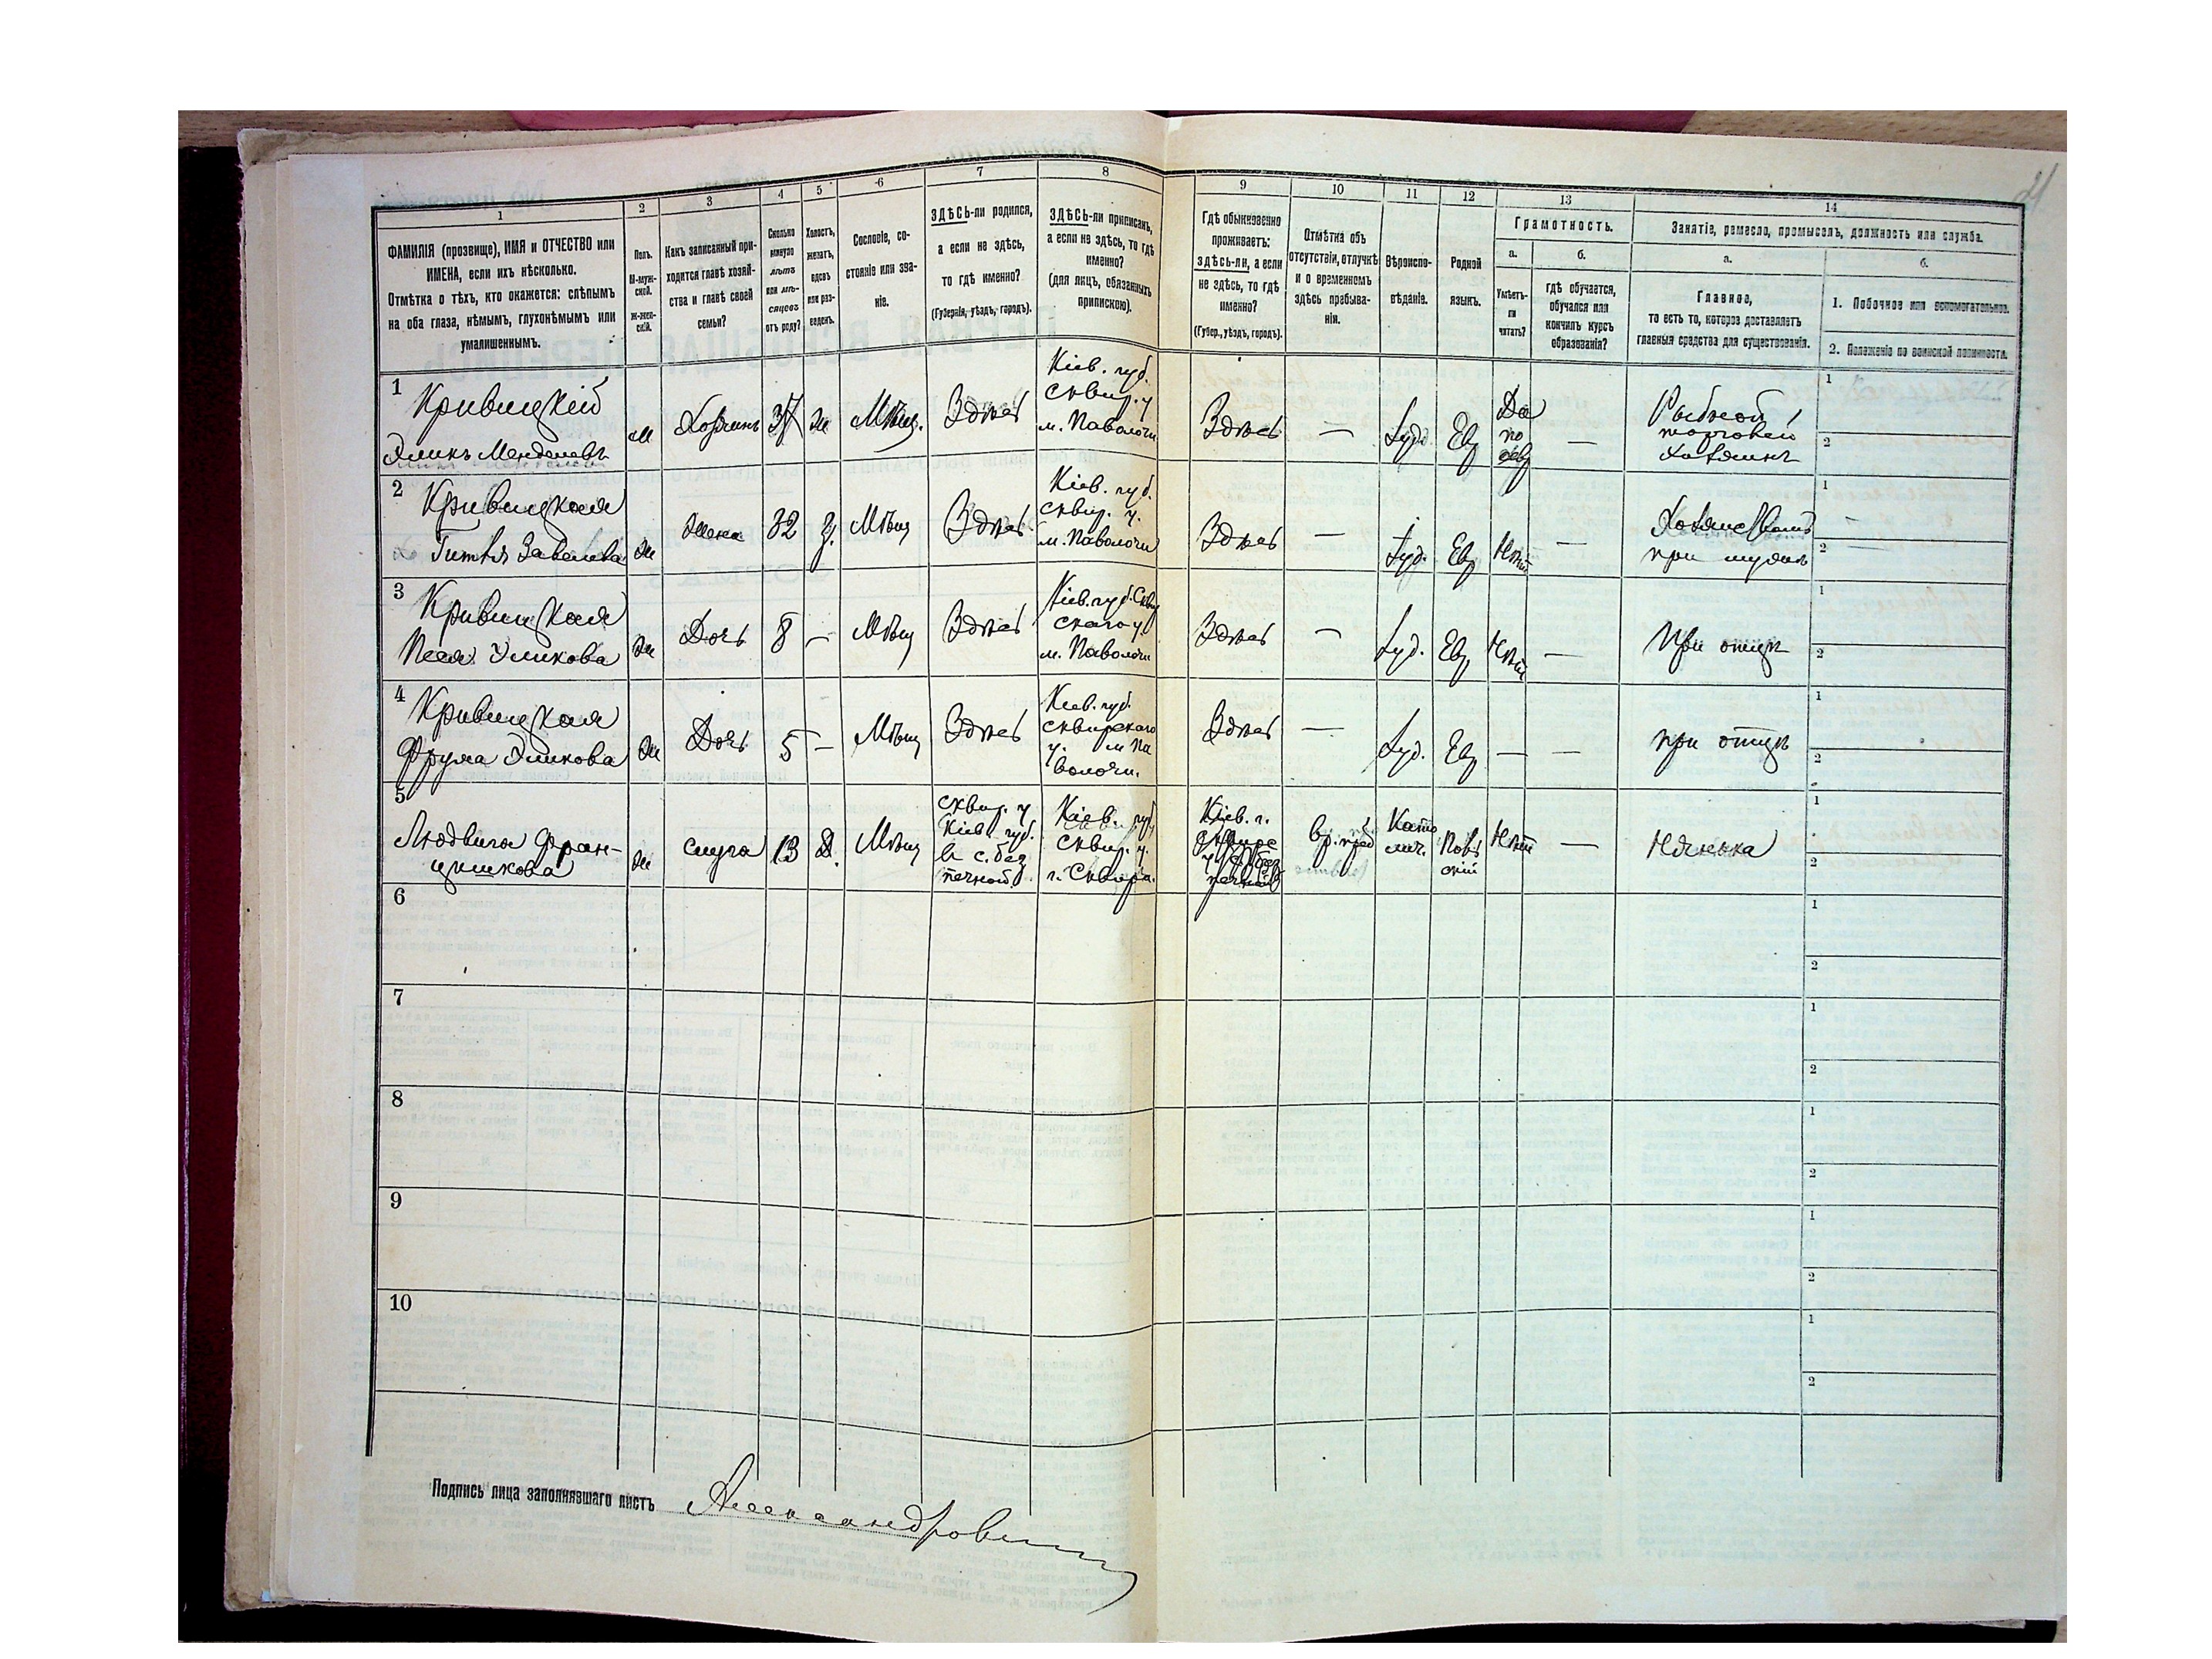 1
ФАМИЛІЯ (прозвище), ИМЯ и ОТЧЕСТВО или
ИМЕНА, если ихъ нѣсколько.
Отмѣтка о тѣхъ, кто окажется: слѣпымъ
на оба глаза, нѣмымъ, глухонѣмымъ или
умалишеннымъ.
2
Полъ.
М-муж-
ской.
Ж-жен-
скій.
3
Какъ записанный при-
ходится главѣ хозяй-
ства и главѣ своей
семьи?
4
Сколько
минуло
лѣтъ
или мѣ-
сяцевъ
отъ роду?
5
Холостъ,
женатъ,
вдовъ
или раз-
веденъ.
6
Сословіе, со-
стояніе или зва-
ніе.
7
ЗДѢСЬ-ли родился,
а если не здѣсь,
то гдѣ именно?
(Губернія, уѣздъ, городъ).
8
ЗДѢСЬ-ли приписанъ,
а если не здѣсь, то гдѣ
именно?
(для лицъ, обязанныхъ
припискою).
9
Гдѣ обыкновенно
проживаетъ:
здѣсь-ли, а если
не здѣсь, то гдѣ
именно?
(Губер., уѣздъ, городъ).
10
Отмѣтка объ
отсутствіи, отлучкѣ
и о временномъ
здѣсь пребыва-
ніи.
11
Вѣроиспо-
вѣданіе.
12
Родной
языкъ.
13
Грамотность.
а.
Умѣетъ-
ли
читать?
б.
гдѣ обучается,
обучался или
кончилъ курсъ
образованія?
14
Занятіе, ремесло, промыселъ, должность или служба.
а.
Главное,
то есть то, которое доставляетъ
главныя средства для существованія.
б.
1. Побочное или вспомогательное.
2. Положеніе по воинской повинности.
1
Кривицкій
Эликъ Менделевъ
м
Хозяинъ
37
ж
Мѣщ.
Здѣсь
Кіев. губ.
Сквир. у
м. Паволочи
Здѣсь
—
Іуд.
Евр
Да
по
евр
—
Рыбной
торговли
хозяинъ
1
2
2
Кривицкая
ж
Жена
32
з.
Мѣщ
Здѣсь
Кіев. губ.
Сквир. у.
м. Паволочи
Здѣсь
—
Іуд.
Евр
Нѣтъ
—
при мужѣ
1
2
3
Кривицкая
Песя Эликова
ж
Дочь
8
—
Мѣщ
Здѣсь
Кіев. губ. Сквир
скаго у
м. Паволочи
Здѣсь
—
Іуд.
Евр
Нѣтъ
—
При отцѣ
1
2
4
Кривицкая
Фрума Эликова
ж
Дочь
5
—
Мѣщ
Здѣсь
Кіев. губ.
Сквирскаго
у. м Па
волочи.
Здѣсь
—
Іуд.
Евр
—
—
при отцѣ
1
2
5
Людвига Фран-
цишкова
ж
слуга
13
Д.
Мѣщ
Сквир. у
Кіев. губ.
в с. Без
печной
Кіев. губ
Сквир. у.
г. Сквира.
Кіев. г.
Вр. преб
Като
лич.
Поль
скій
Нѣтъ
—
Нянька
1
2
6
1
2
7
1
2
8
1
2
9
1
2
10
1
2
Подпись лица заполнявшаго листъ
Александрович